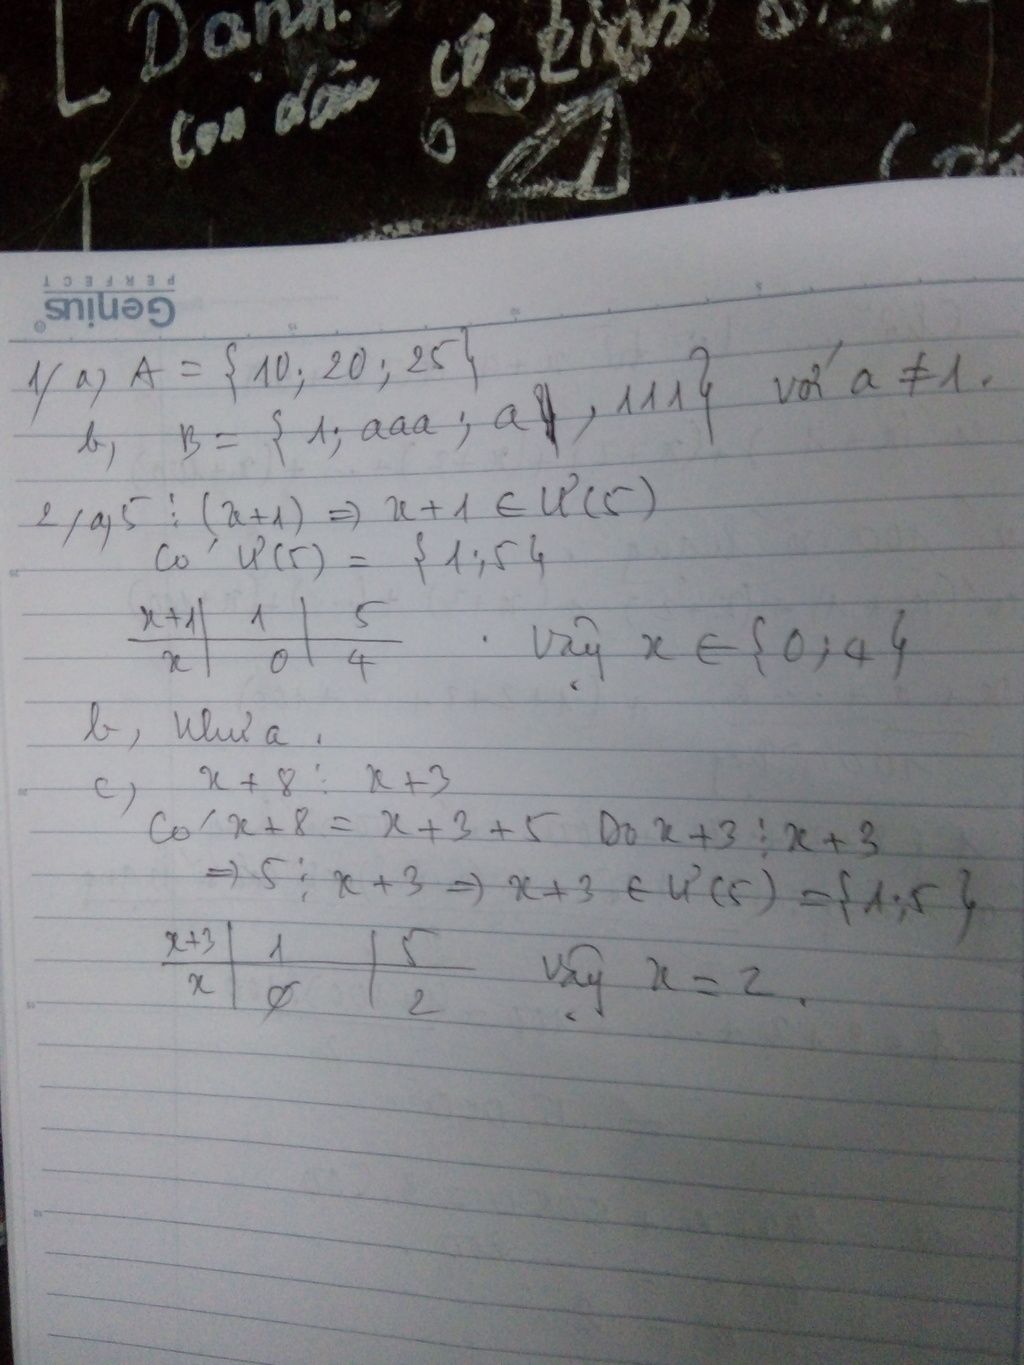 Danh
con dấu có
1/ a, A = {10; 20; 25}
b, B = {1; aaa; a, 111} với a ≠ 1.
2/ a, 5 ⋮ (x+1) => x+1 ∈ Ư(5)
Có Ư(5) = {1; 5}
x+1 | 1 | 5
x | 0 | 4 . Vậy x ∈ {0; 4}
b, Như a.
c, x + 8 ⋮ x + 3
Có x + 8 = x + 3 + 5 Do x + 3 ⋮ x + 3
=> 5 ⋮ x + 3 => x + 3 ∈ Ư(5) = {1; 5}
x+3 | 1 | 5
x | ∅ | 2 Vậy x = 2.
Genius
PERFECT